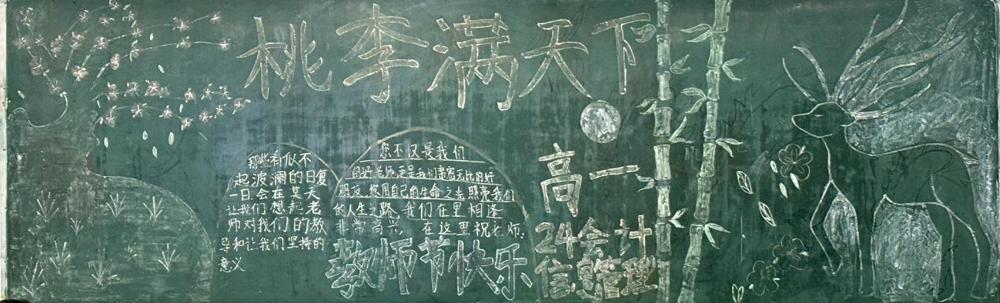 桃李满天下
那些看似不
起波澜的日复
一日会在某天
让我们想起老
师对我们的教
导和让我们坚持的
意义
您不仅是我们
的好老师更是我们亲密无比的好
朋友,您用自己的生命之光照亮我们
的人生之路,我们在里相逢
非常高兴,在这里祝老师.
教师节快乐
高一
24会计
信息管理